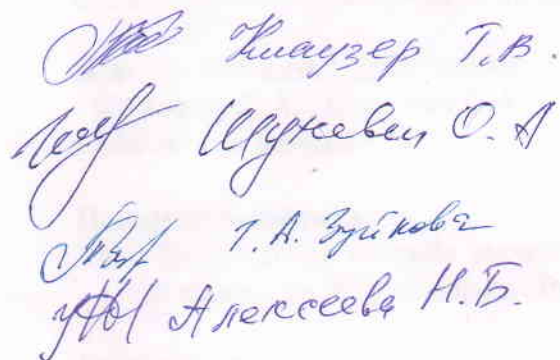 Клаузер Т.В.
Шукевич О.А
Т.А. Зуйкова
Алексеева Н.Б.